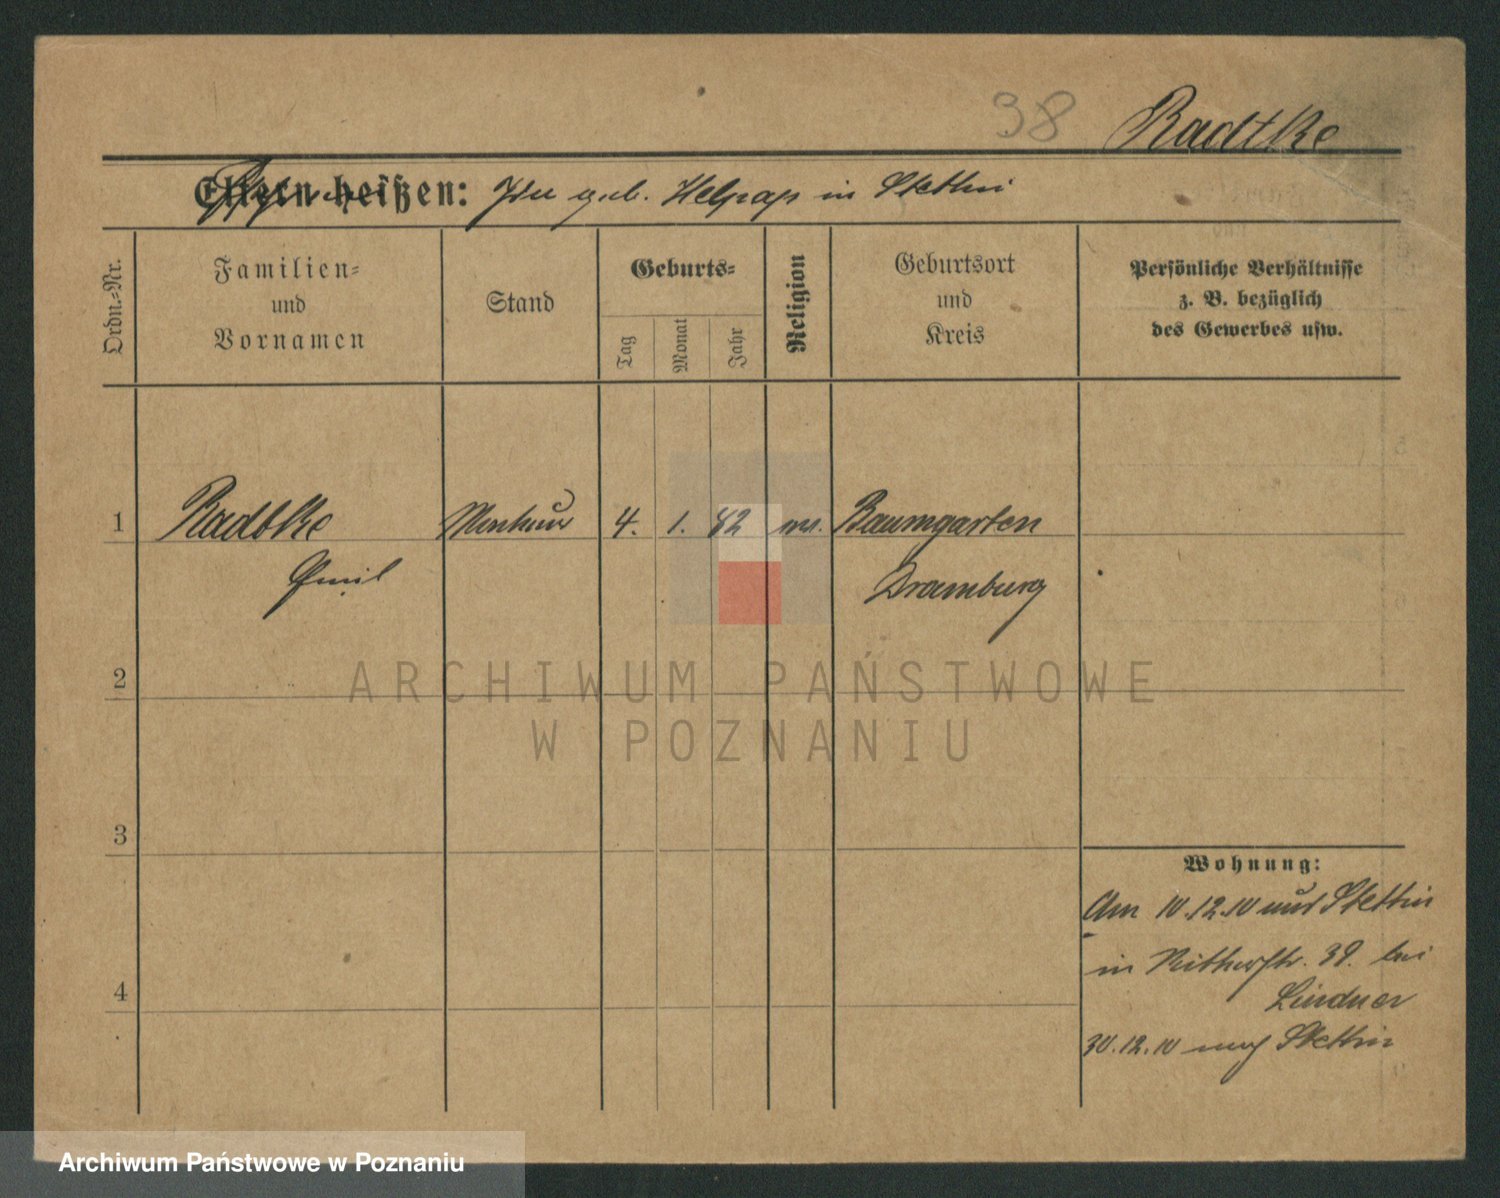 38 Radtke
Eltern heißen: geb. Helzap in Stettin
Ordn.=Nr.
Familien=
und
Vornamen
Stand
Geburts=
Tag
Monat
Jahr
Religion
Geburtsort
und
Kreis
Persönliche Verhältnisse
z. B. bezüglich
des Gewerbes usw.
1 Radtke Monteur 4. 1. 82 ev. Baumgarten
Emil Dramburg
2
3
4
Wohnung:
Am 10.12.10 aus Stettin
in Ritterstr. 38. bei
Lindner
30.12.10 nach Stettin
ARCHIWUM PAŃSTWOWE
W POZNANIU
Archiwum Państwowe w Poznaniu